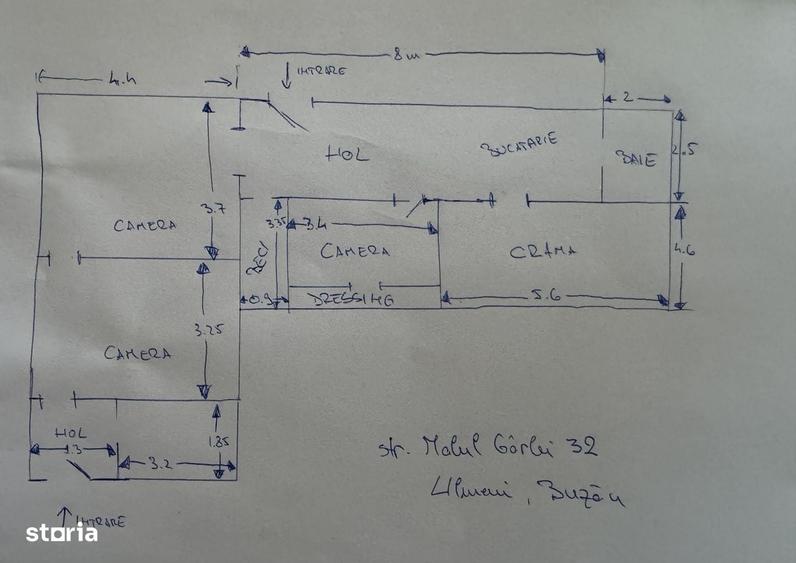 8 m
4.4
INTRARE
2
HOL
BUCATARIE
BAIE
2.5
3.7
CAMERA
3.35
3.4
BECI
CAMERA
CRAMA
4.6
0.9
DRESSING
5.6
3.25
CAMERA
HOL
1.3
3.2
1.85
str. Malul Gârlei 32
Ulmeni, Buzău
INTRARE
storia